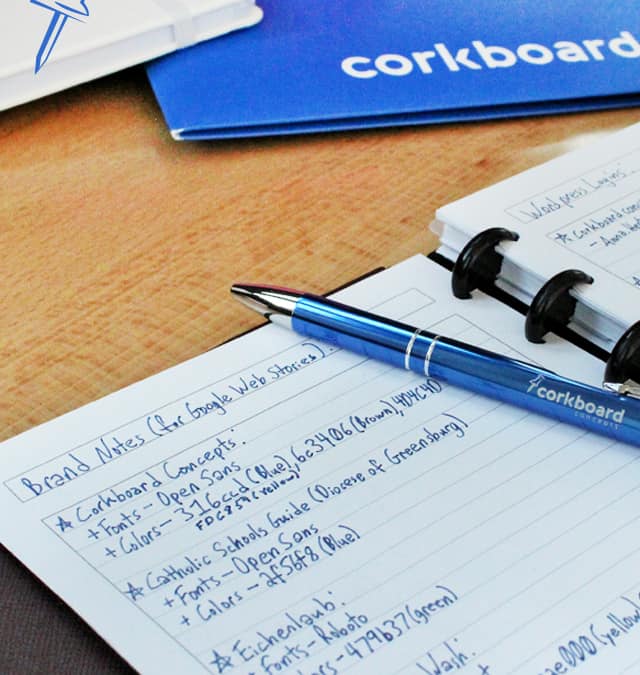 corkboard
Wordpress Logins:
★ Corkboard
Brand Notes (for Google Web Stories):
★ Corkboard Concepts:
+ Fonts - Open Sans
+ Colors - 316ccd (Blue), 6c3406 (Brown), 404C4D
FDC859 (yellow),
★ Catholic Schools Guide (Diocese of Greensburg)
+ Fonts - Open Sans
+ Colors - 2f56f8 (Blue)
★ Eichenlaub:
+ Fonts - Roboto
Colors - 479b37 (green)
Wash:
ae000 (yellow)
corkboard
CONCEPTS